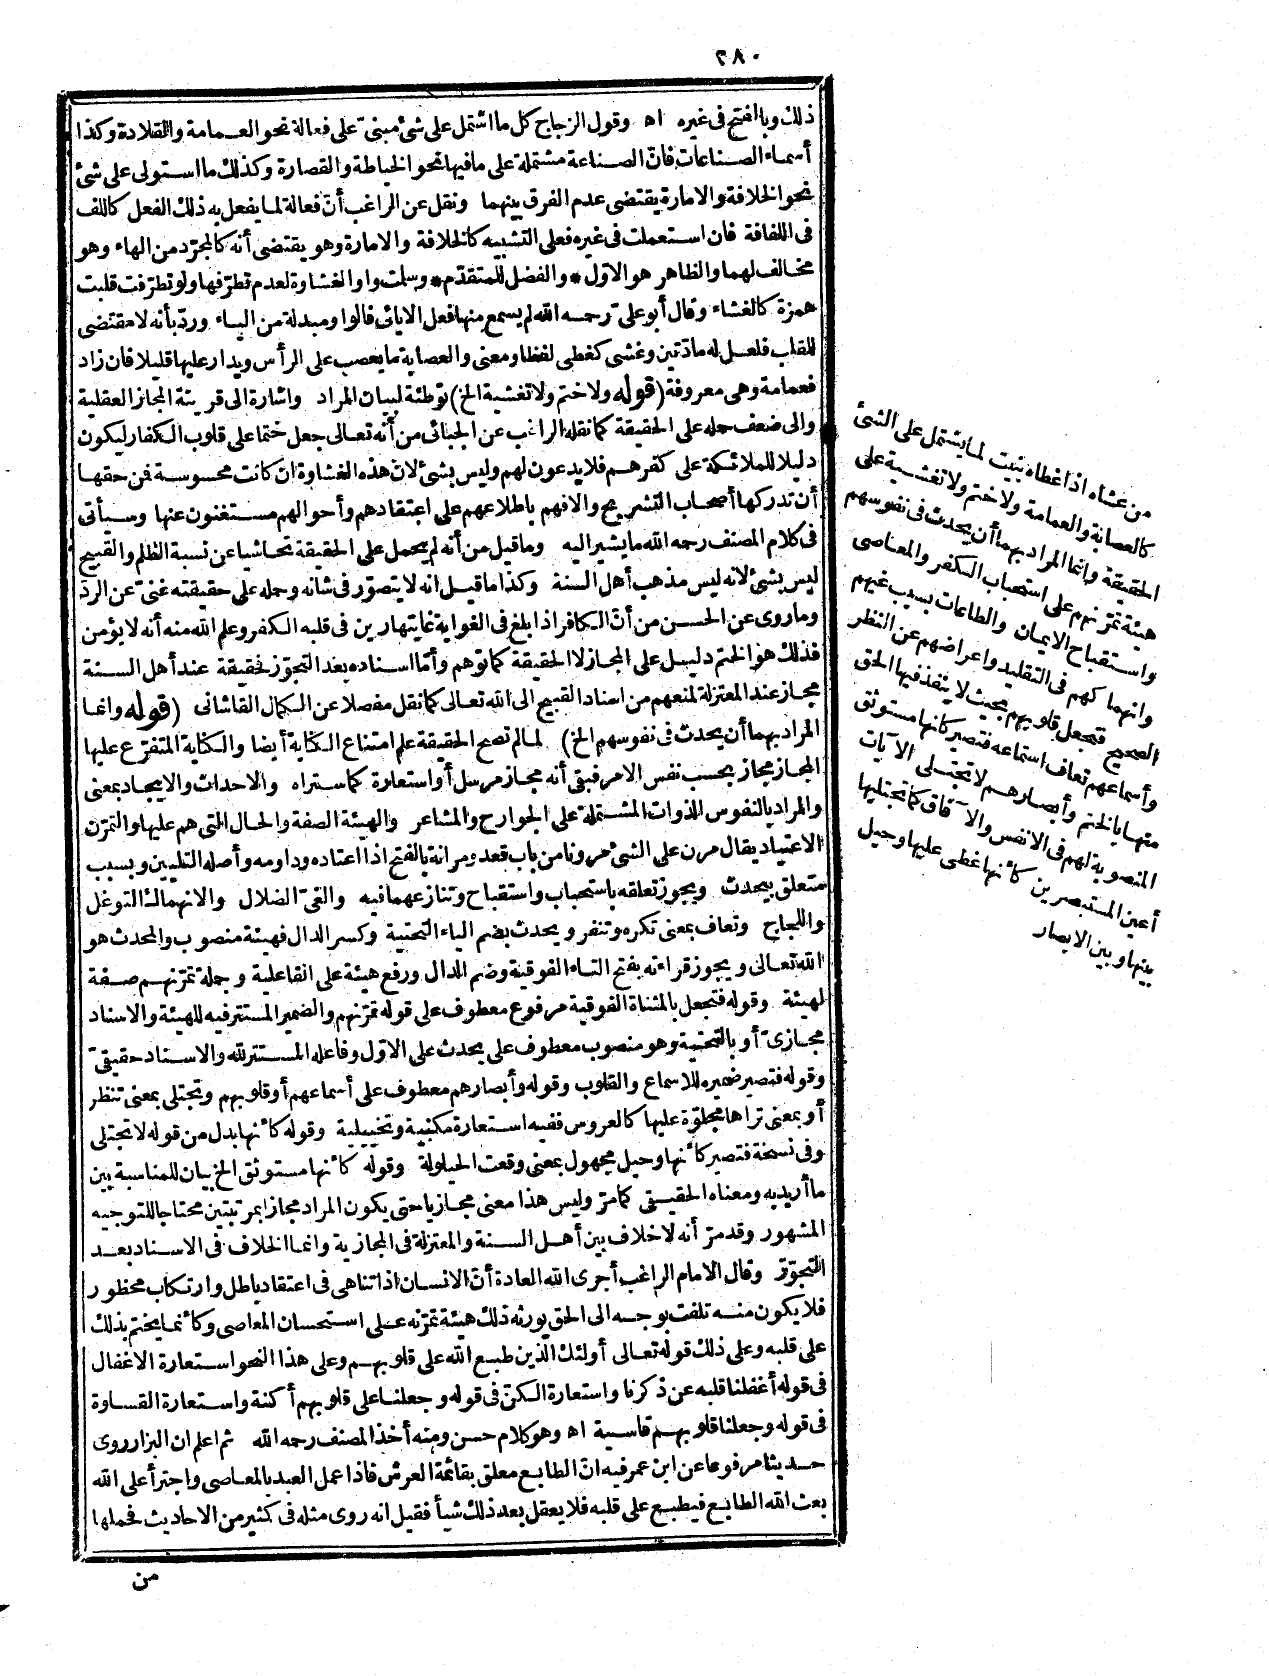 ٢٨٠
ذلك وبالفتح في غيره اه وقول الزجاج كل ما اشتمل على شئ مبنىّ على فعالة نحو العمامة والقلادة وكذا
أسماء الصناعات فانّ الصناعة مشتملة على ما فيها نحو الخياطة والقصارة وكذلك ما استولى على شئ
نحو الخلافة والامارة يقتضى عدم الفرق بينهما ونقل عن الراغب أنّ فعالة لما يفعل به ذلك الفعل كاللف
فى اللفافة فان استعملت فى غيره فعلى التشبيه كالخلافة والامارة وهو يقتضى أنه كالمجرّد من الهاء وهو
مخالف لهما والظاهر هو الاوّل * والفضل للمتقدّم * وسلمت واو الغشاوة لعدم تطرّفها ولو تطرّفت قلبت
همزة كالغشاء وقال أبو علىّ رحمه الله لم يسمع منها فعل الايائى فالوا ومبدلة من الياء وردّ بأنه لا مقتضى
للقلب فلعل له مادّتين وغشى كغطى لفظا ومعنى والعصابة ما يعصب على الرأس ويدار عليها قليلا فان زاد
فعمامة وهى معروفة (قوله ولا ختم ولا تغشية الخ) توطئة لبيان المراد واشارة الى قرينة المجاز العقلية
والى ضعف حمله على الحقيقة كما نقله الراغب عن الجبائى من أنه تعالى جعل ختما على قلوب الكفار ليكون
دليلا للملائكة على كفرهم فلا يدعون لهم وليس بشئ لان هذه الغشاوة ان كانت محسوسة فمن حقها
أن تدركها أصحاب التشريح والا فهم باطلاعهم على اعتقادهم وأحوالهم مستغنون عنها وسيأتى
فى كلام المصنف رحمه الله ما يشير اليه وما قيل من أنه لم يحمل على الحقيقة تحاشيا عن نسبة الظلم والقبيح
ليس بشئ لانه ليس مذهب أهل السنة وكذا ما قيل انه لا يتصوّر فى شانه وحمله على حقيقته غنىّ عن الردّ
وما روى عن الحسن من أنّ الكافر اذا بلغ فى الغواية غايتها رين فى قلبه الكفر وعلم الله منه أنه لا يؤمن
فذلك هو الختم دليل على المجاز لا الحقيقة كما توهم وأمّا اسناده بعد التجوّز فحقيقة عند أهل السنة
مجاز عند المعتزلة لمنعهم من اسناد القبيح الى الله تعالى كما نقل مفصلا عن الكمال القاشانى (قوله وانما
المراد بهما أن يحدث فى نفوسهم الخ) لما لم تصح الحقيقة علم امتناع الكناية أيضا والكناية المتفرّع عليها
المجاز مجاز بحسب نفس الامر فبقى أنه مجاز مرسل أو استعارة كما ستراه والاحداث والايجاد بمعنى
والمراد بالنفوس الذوات المشتملة على الجوارح والمشاعر والهيئة الصفة والحال التى هم عليها والتمرّن
الاعتياد يقال مرن على الشئ مرونا من باب قعد ومرانة بالفتح اذا اعتاده وداومه وأصله التليين وبسبب
متعلق بيحدث ويجوز تعلقه باستحباب واستقباح وتنازعهما فيه والغىّ الضلال والانهماك التوغل
واللجاج وتعاف بمعنى تكره وتنفر ويحدث بضم الياء التحتية وكسر الدال فهيئة منصوب والمحدث هو
الله تعالى ويجوز قراءته بفتح التاء الفوقية وضم الدال ورفع هيئة على الفاعلية وجملة تمرّنهم صفة
لهيئة وقوله فتجعل بالمثناة الفوقية مرفوع معطوف على قوله تمرّنهم والضمير المستتر فيه للهيئة والاسناد
مجازىّ أو بالتحتية وهو منصوب معطوف على يحدث على الاوّل وفاعله المستتر لله والاسناد حقيقىّ
وقوله فتصير ضميره للاسماع والقلوب وقوله وأبصارهم معطوف على أسماعهم أو قلوبهم وتجتلى بمعنى تنظر
أو بمعنى تراها مجلوّة عليها كالعروس ففيه استعارة مكنية وتخييلية وقوله كأنها بدل من قوله لا تجتلى
وفى نسخة فتصير كأنها وحيل مجهول بمعنى وقعت الحيلولة وقوله كأنها مستوثق الخ بيان للمناسبة بين
ما أريد به ومعناه الحقيقى كما مرّ وليس هذا معنى مجازيا حتى يكون المراد مجازا بمرتبتين محتاجا للتوجيه
المشهور وقد مرّ أنه لا خلاف بين أهل السنة والمعتزلة فى المجازية وانما الخلاف فى الاسناد بعد
التجوّز وقال الامام الراغب أجرى الله العادة أنّ الانسان اذا تناهى فى اعتقاد باطل وارتكاب محظور
فلا يكون منه تلفت بوجه الى الحق يورثه ذلك هيئة تمرّنه على استحسان المعاصى وكأنما يختم بذلك
على قلبه وعلى ذلك قوله تعالى أولئك الذين طبع الله على قلوبهم وعلى هذا النحو استعارة الاغفال
فى قوله أغفلنا قلبه عن ذكرنا واستعارة الكنّ فى قوله وجعلنا على قلوبهم أكنة واستعارة القساوة
فى قوله وجعلنا قلوبهم قاسية اه وهو كلام حسن ومنه أخذ المصنف رحمه الله ثم اعلم ان البزار روى
حديثا مرفوعا عن ابن عمر فيه انّ الطابع معلق بقائمة العرش فاذا عمل العبد بالمعاصى واجترأ على الله
بعث الله الطابع فيطبع على قلبه فلا يعقل بعد ذلك شيأ فقيل انه روى مثله فى كثير من الاحاديث فحملها
من
من غشاه اذا غطاه بنيت لما يشتمل على الشئ
كالعصابة والعمامة ولا ختم ولا تغشية على
الحقيقة وانما المراد بهما أن يحدث فى نفوسهم
هيئة تمرّنهم على استحباب الكفر والمعاصى
واستقباح الايمان والطاعات بسبب غيهم
وانهماكهم فى التقليد واعراضهم عن النظر
الصحيح فتجعل قلوبهم بحيث لا ينفذ فيها الحق
وأسماعهم تعاف استماعه فتصير كأنها مستوثق
منها بالختم وأبصارهم لا تجتلى الآيات
المنصوبة لهم فى الانفس والآفاق كما تجتليها
أعين المستبصرين كأنها غطى عليها وحيل
بينها وبين الابصار